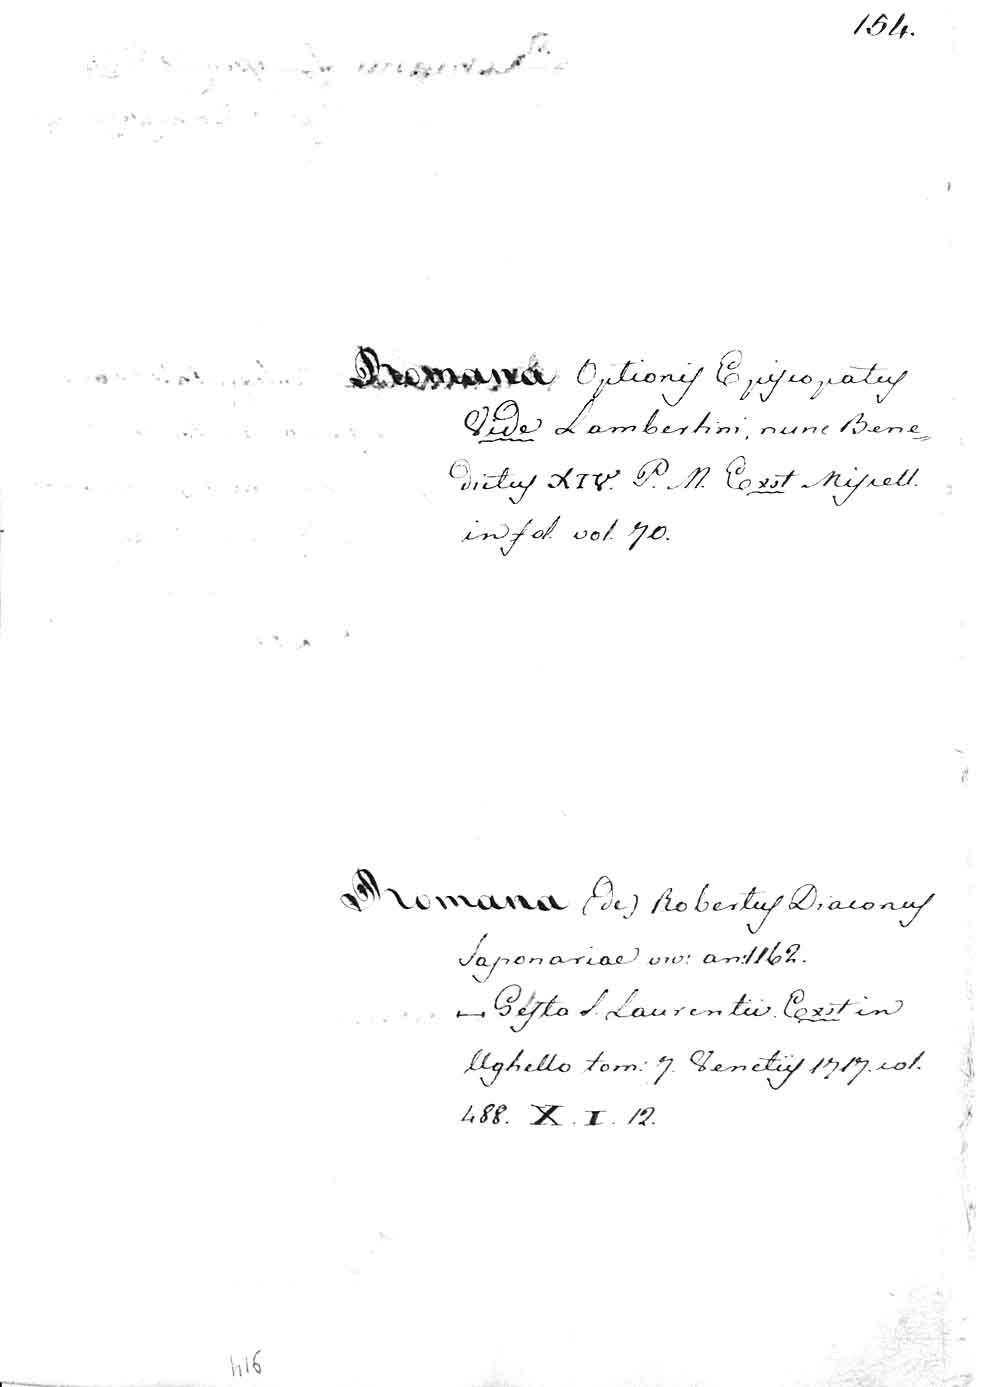 154.
Romana Optionis Episcopatus
Vide Lambertini, nunc Bene=
dictus XIV. P. M. Exst Miscell.
in fol. vol. 70.
Romana (de) Robertus Diaconus
Saponariae viv: an: 1162.
— Gesta S. Laurentii. Exst in
Ughello tom: 7. Venetiis 1717. col.
488. X. I. 12.
416